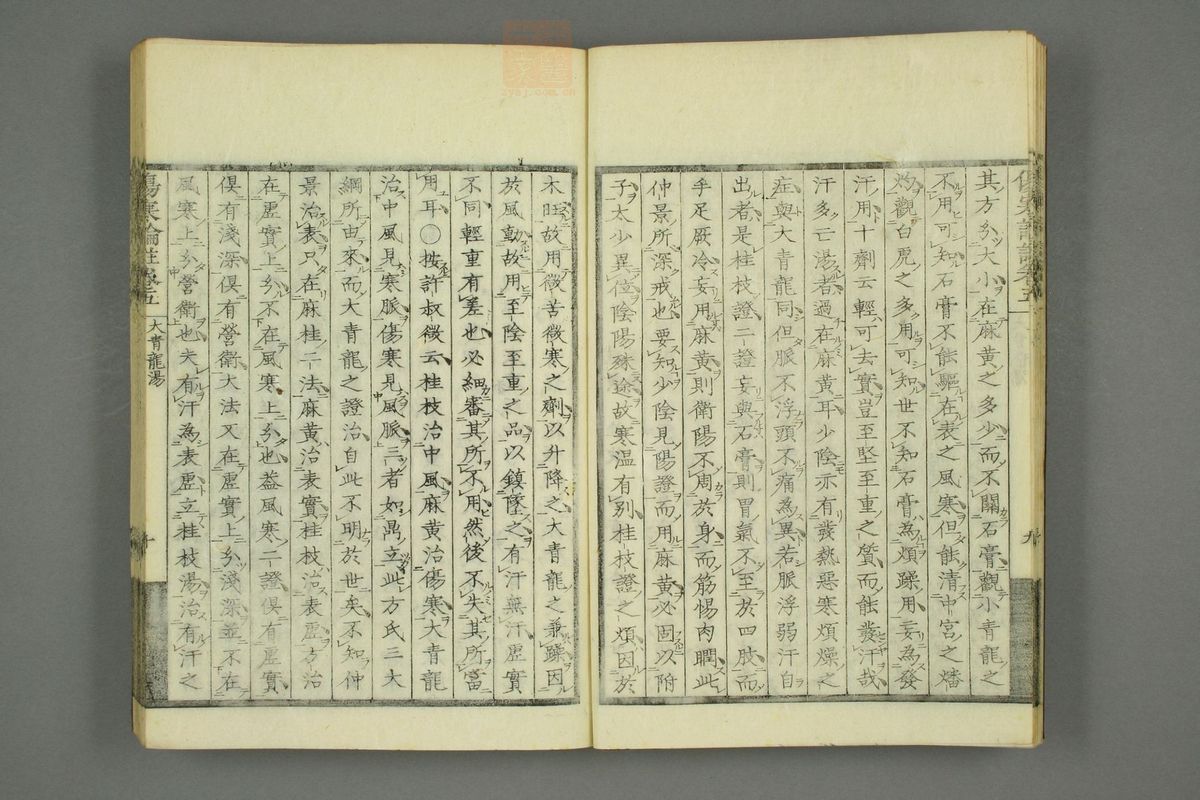 其方分大小在麻黃之多少而不關石膏觀小青龍之
不用可知石膏不能驅在表之風寒但能清中宮之燔
灼觀白虎之多用可知世不知石膏為煩躁用妄為發
汗用十劑云輕可去實豈至堅至重之質而能發汗哉
汗多亡陽者過在麻黃耳少陰亦有發熱惡寒煩燥之
症與大青龍同但脈不浮頭不痛為異若脈浮弱汗自
出者是桂枝證二證妄與石膏則胃氣不至於四肢而
手足厥冷妄用麻黃則衛陽不周於身而筋惕肉瞤此
仲景所深戒也要知少陰見陽證而用麻黃必固以附
子太少異位陰陽殊途故寒溫有別桂枝證之煩因於
木旺故用微苦微寒之劑以升降之大青龍之兼躁因
於風動故用至陰至重之品以鎮墜之有汗無汗虛實
不同輕重有差也必細審其所不用然後不失其所當
用耳○按許叔微云桂枝治中風麻黃治傷寒大青龍
治中風見寒脈傷寒見風脈三者如鼎立此方氏三大
綱所由來而大青龍之證治自此不明於世矣不知仲
景治表只在麻桂二法麻黃治表實桂枝治表虛方治
在虛實上分不在風寒上分也蓋風寒二證俱有虛實
俱有淺深俱有營衛大法又在虛實上分淺深並不在
風寒上分營衛也夫有汗為表虛立桂枝湯治有汗之
傷寒論註卷五
大青龍湯
十
九